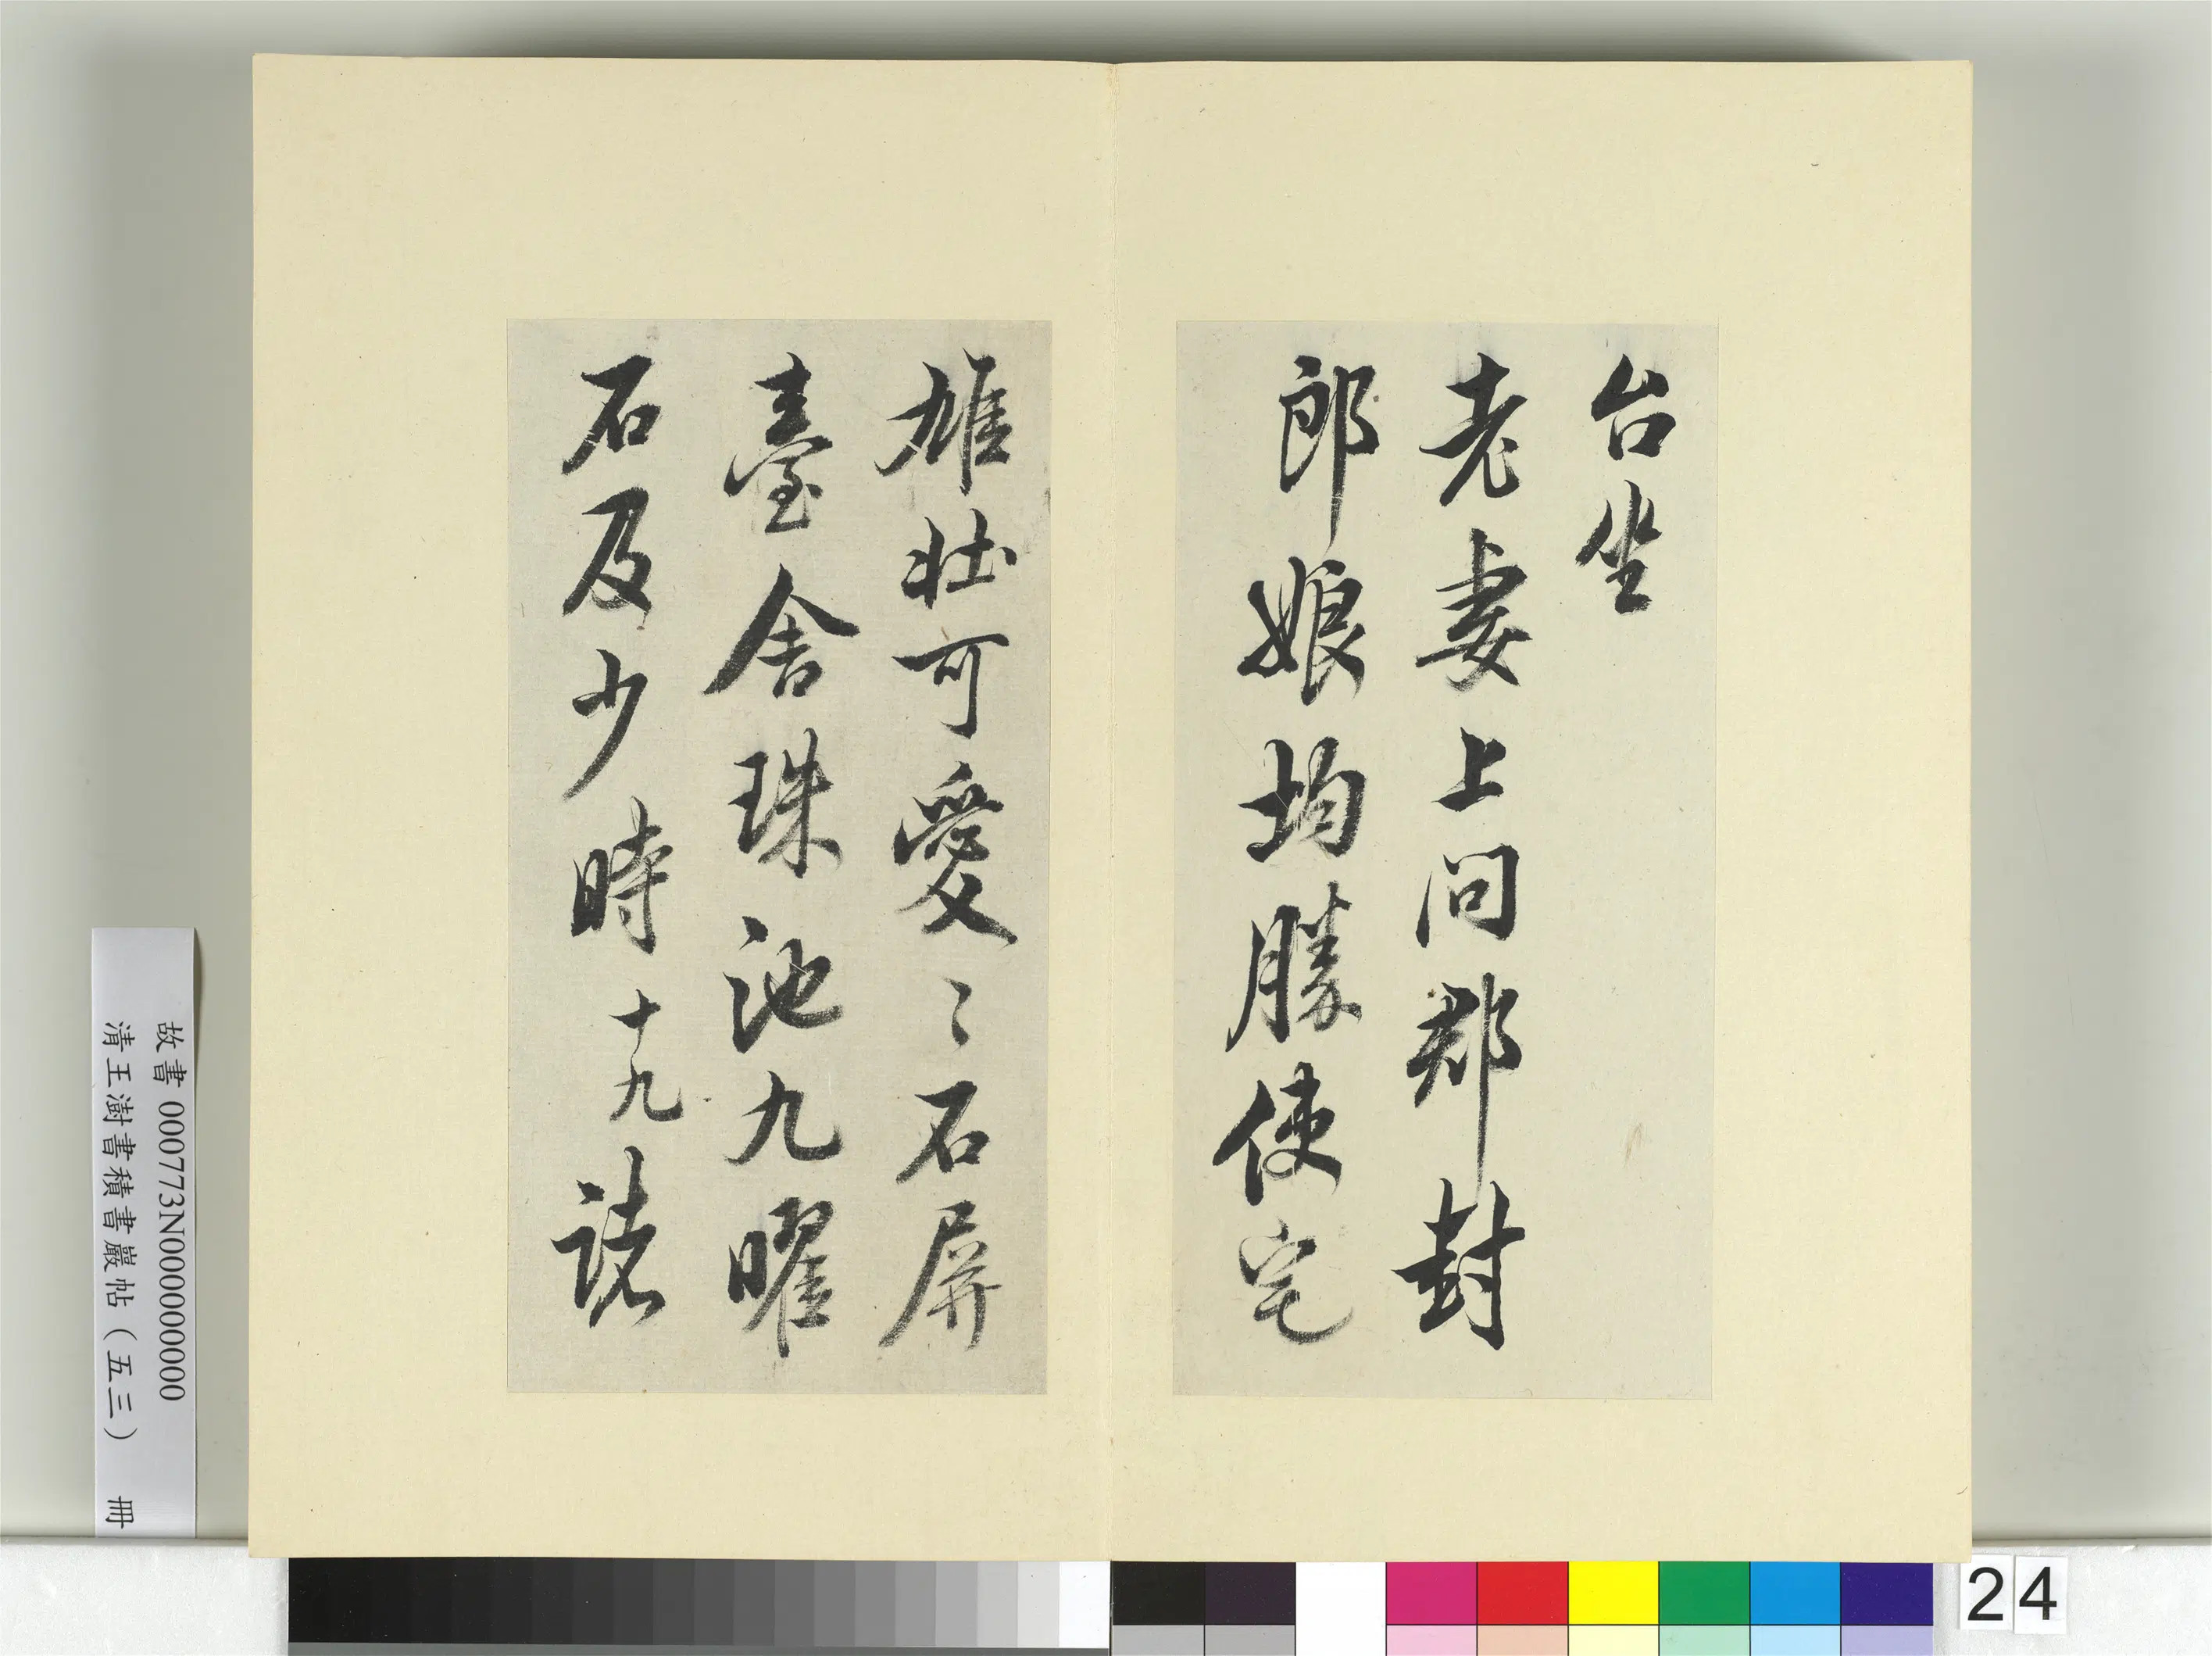 台坐
老妻上問郡封
郎娘均勝使宅
雄壯可愛〻石屏
臺舍珠池九曜
石及少時十九諸
故書 000773N000000000
清王澍書積書巖帖（五三） 冊
24